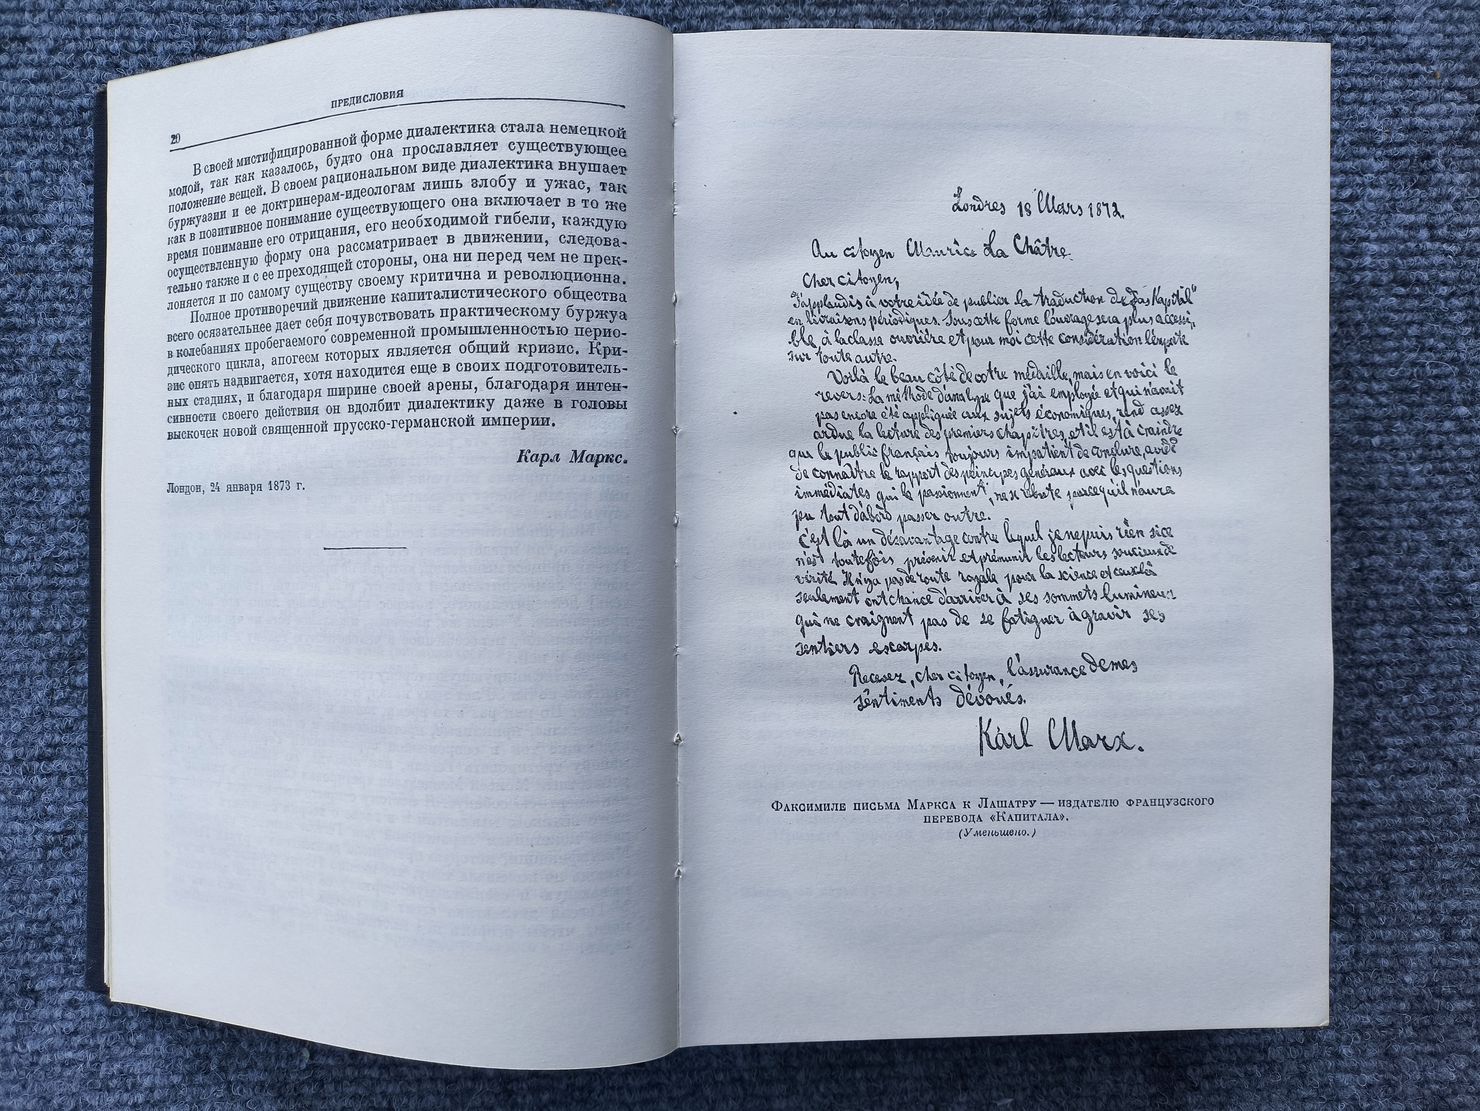 20
ПРЕДИСЛОВИЯ
В своей мистифицированной форме диалектика стала немецкой
модой, так как казалось, будто она прославляет существующее
положение вещей. В своем рациональном виде диалектика внушает
буржуазии и ее доктринерам-идеологам лишь злобу и ужас, так
как в позитивное понимание существующего она включает в то же
время понимание его отрицания, его необходимой гибели, каждую
осуществленную форму она рассматривает в движении, следова-
тельно также и с ее преходящей стороны, она ни перед чем не прек-
лоняется и по самому существу своему критична и революционна.
Полное противоречий движение капиталистического общества
всего осязательнее дает себя почувствовать практическому буржуа
в колебаниях пробегаемого современной промышленностью перио-
дического цикла, апогеем которых является общий кризис. Кри-
зис опять надвигается, хотя находится еще в своих подготовитель-
ных стадиях, и благодаря ширине своей арены, благодаря интен-
сивности своего действия он вдолбит диалектику даже в головы
выскочек новой священной прусско-германской империи.
Карл Маркс.
Лондон, 24 января 1873 г.
Londres 18 Mars 1872.
Au citoyen Maurice La Châtre.
Cher citoyen,
J'applaudis à votre idée de publier la traduction de "Das Kapital"
en livraisons périodiques. Sous cette forme l'ouvrage sera plus accessi-
ble à la classe ouvrière et pour moi cette considération l'emporte
sur toute autre.
Voilà le beau côté de votre médaille, mais en voici le
revers: La méthode d'analyse que j'ai employée et qui n'avait
pas encore été appliquée aux sujets économiques, rend assez
ardue la lecture des premiers chapitres, et il est à craindre
que le public français toujours impatient de conclure, avide
de connaître le rapport des principes généraux avec les questions
immédiates qui le passionnent, ne se rebute parce qu'il n'aura
pu tout d'abord passer outre.
C'est là un désavantage contre lequel je ne puis rien si ce
n'est toutefois prévenir et prémunir les lecteurs soucieux de
vérité. Il n'y a pas de route royale pour la science et ceux-là
seulement ont chance d'arriver à ses sommets lumineux
qui ne craignent pas de se fatiguer à gravir ses
sentiers escarpés.
Recevez, cher citoyen, l'assurance de mes
sentiments dévoués.
Karl Marx.
Факсимиле письма Маркса к Лашатру — издателю французского
перевода «Капитала».
(Уменьшено.)